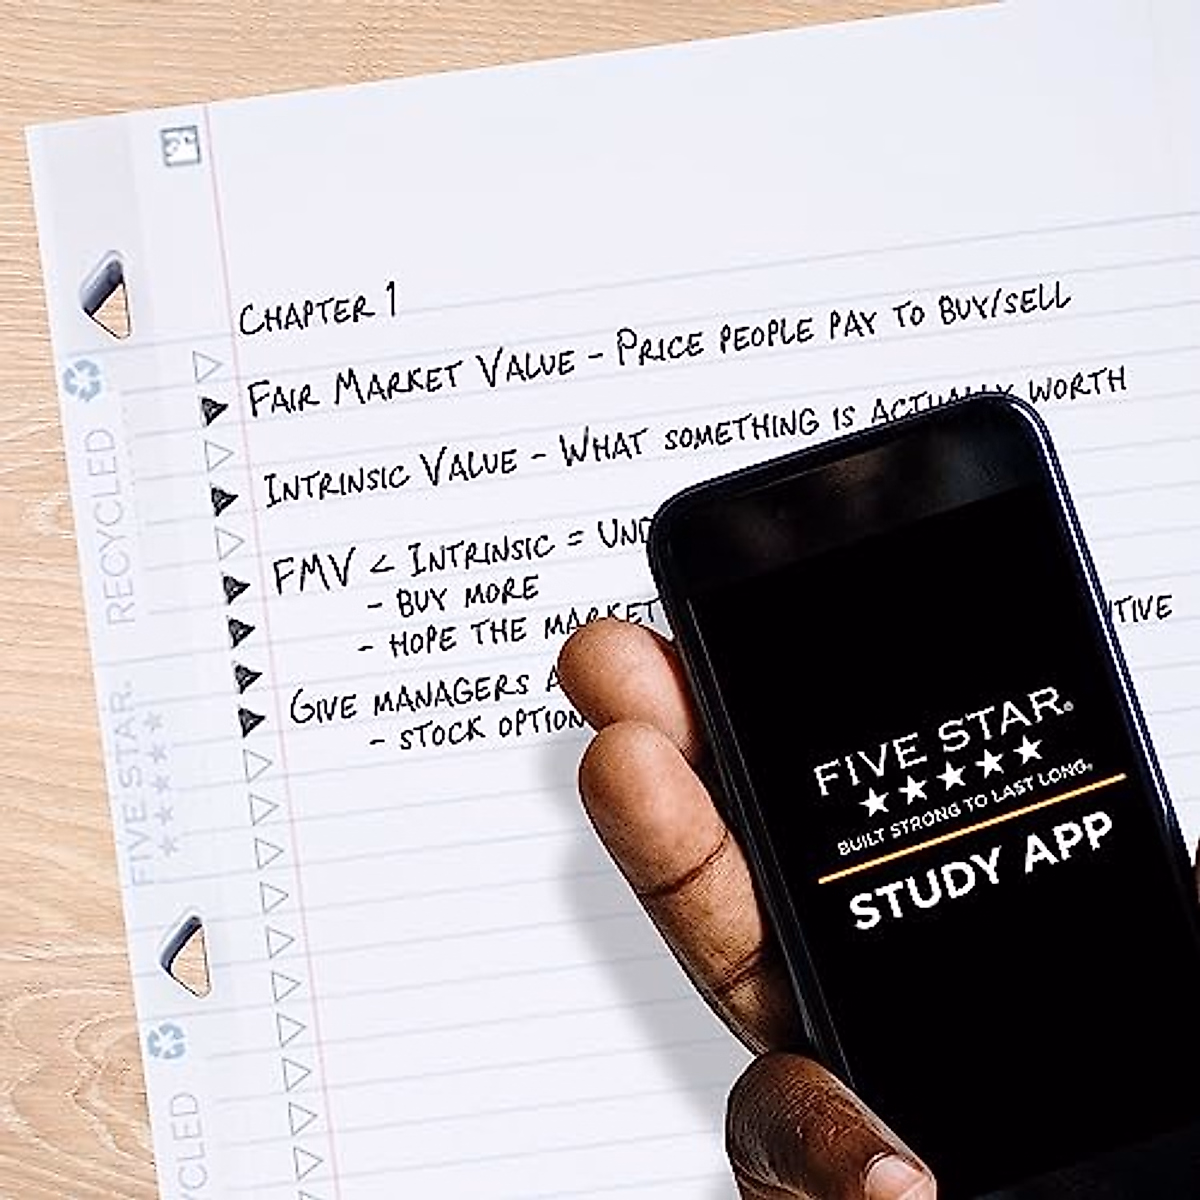 CHAPTER 1
FAIR MARKET VALUE - PRICE PEOPLE PAY TO BUY/SELL
INTRINSIC VALUE - WHAT SOMETHING IS ACTUALLY WORTH
FMV < INTRINSIC = UND
- BUY MORE
- HOPE THE MARKET TIVE
GIVE MANAGERS A
- STOCK OPTION
RECYCLED
FIVE STAR.
★★★★★
YCLED
FIVE STAR®
★★★★★
BUILT STRONG TO LAST LONG®
STUDY APP